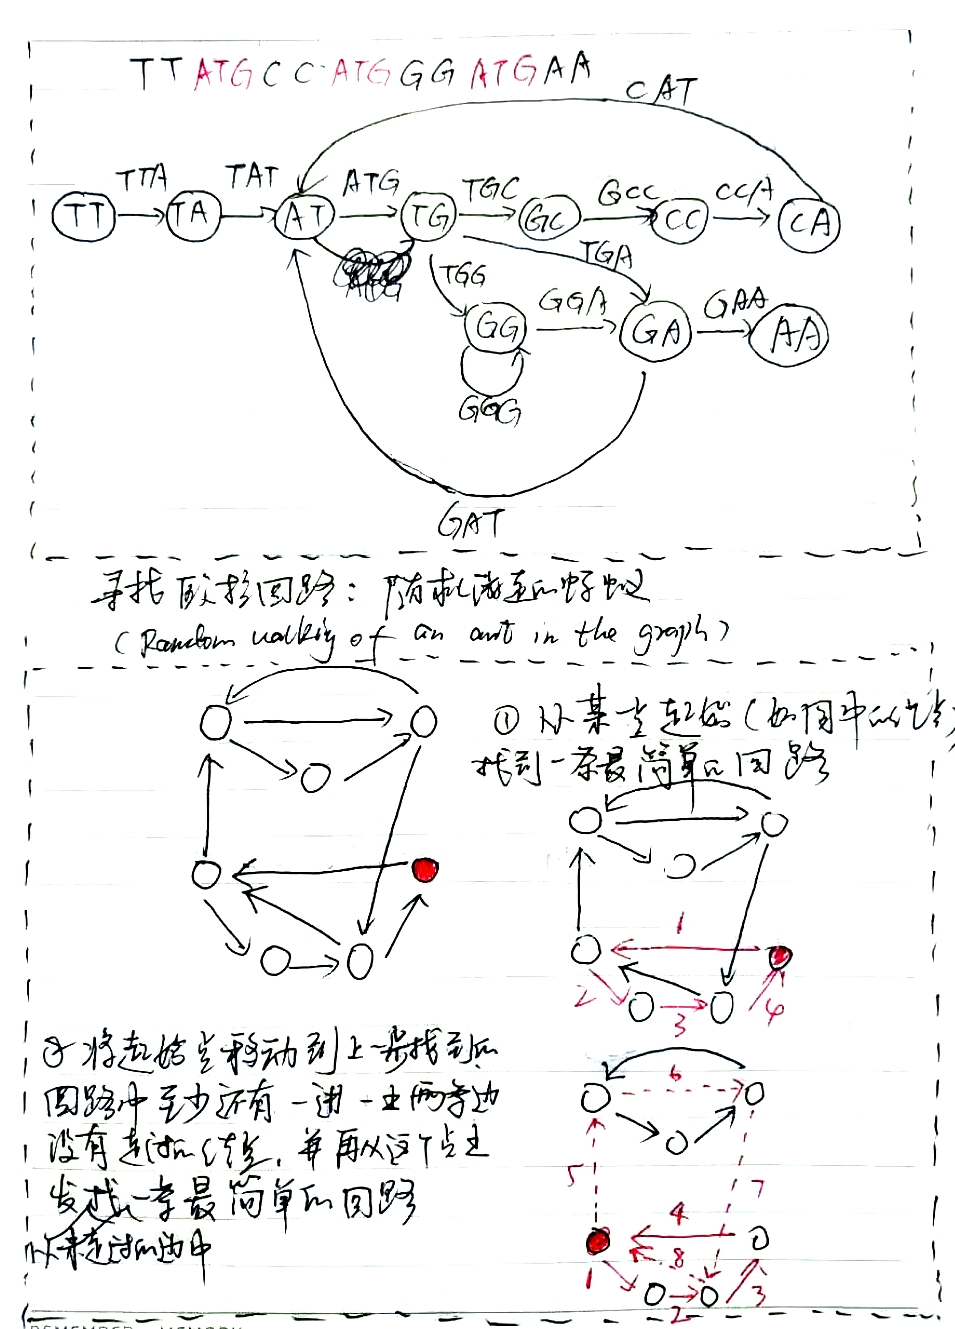 TTATGCCATGGGATGAA
CAT
TTA TAT ATG TGC GCC CCA
TT TA AT TG GC CC CA
TGA
TGG GGA GAA
GG GA AA
GGG
GAT
寻找欧拉回路：随机游走的蚂蚁
(Random walking of an ant in the graph)
① 从某点起始(如图中的红点)
找到一条最简单的回路
1
2 3 4
② 将起始点移动到上一步找到的
回路中至少还有一进一出两条边
没有走过的结点，并再从这个点出
发找一条最简单的回路
从未走过的边中
6
5 7
4
8
1 2 3